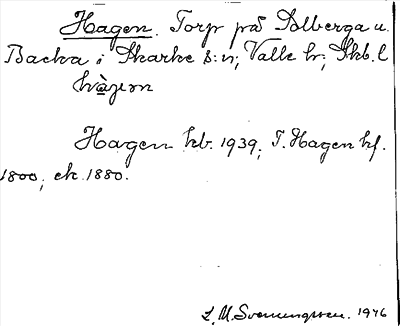 Hagen. Torp på Solberga u.
Backa i Skarke s:n; Valle hr; Skb. l.
hàgen
Hagen kb. 1939; T. Hagen hf.
1800; ek. 1880.
L. M. Svenungsson. 1946